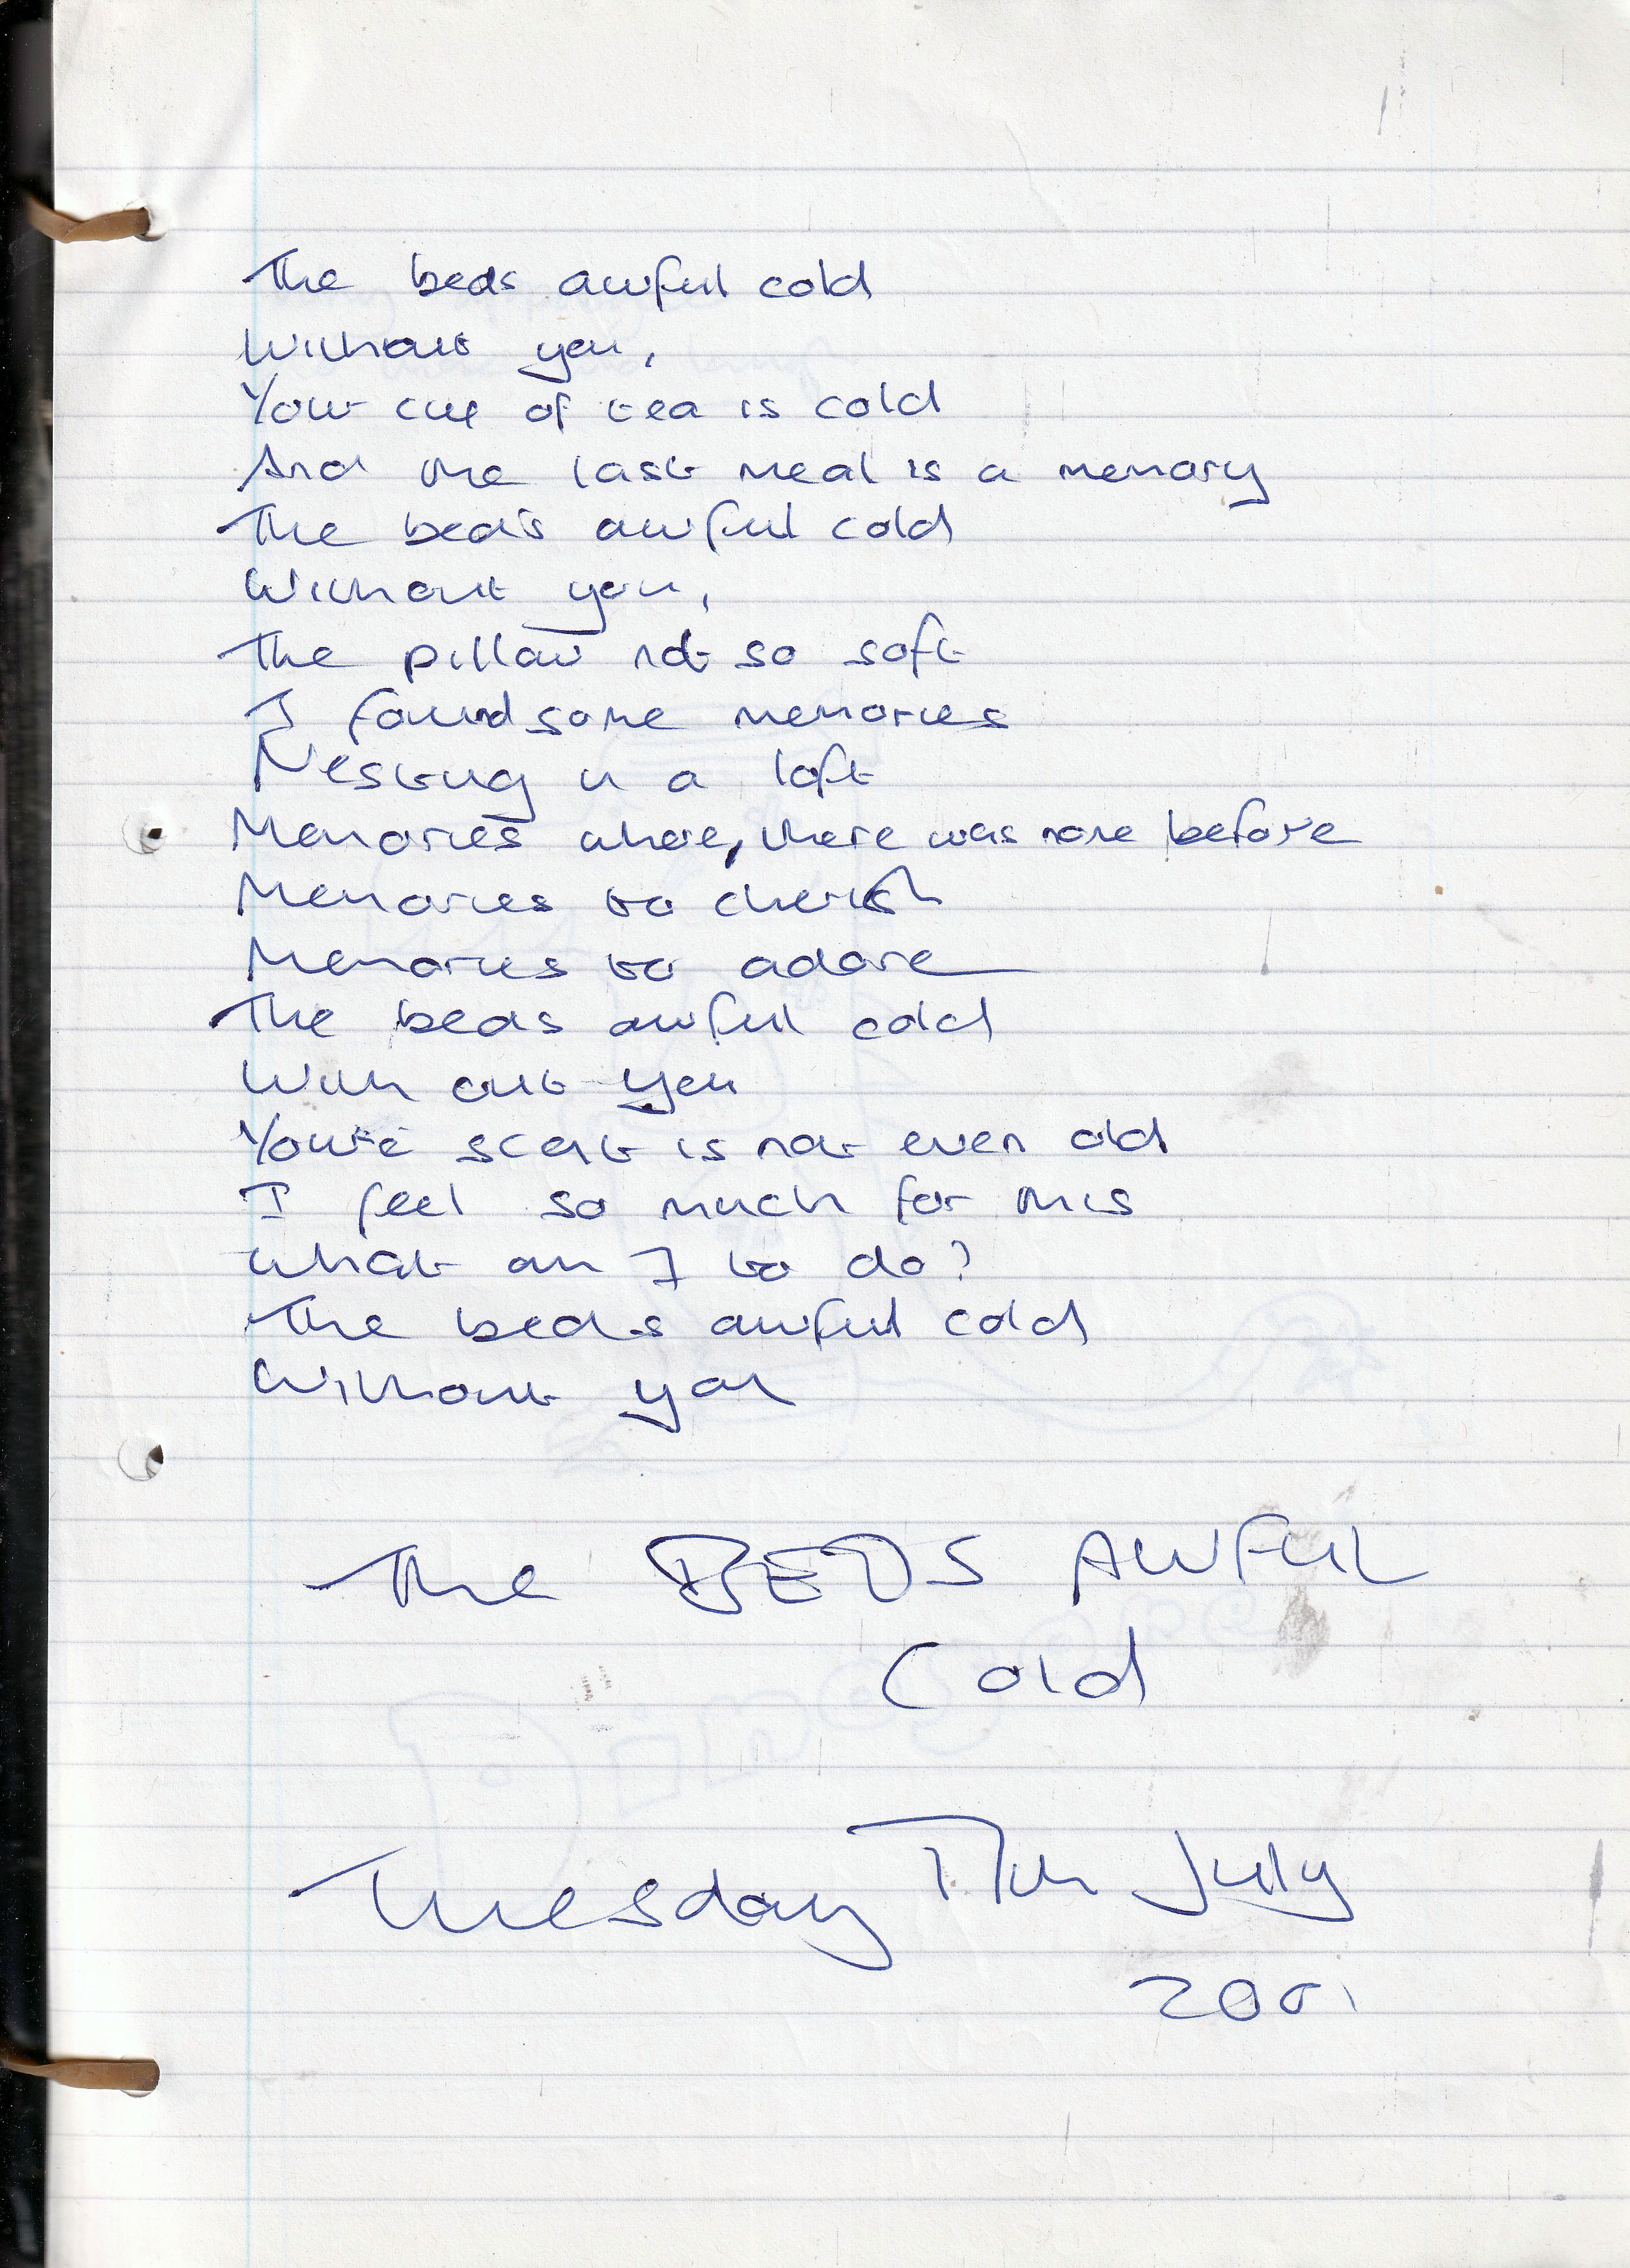 The beds awful cold
Without you,
Your cup of tea is cold
And the last meal is a memory
The bed's awful cold
Without you,
The pillow not so soft
I found some memories
Nesting in a loft
Memories where, there was none before
Memories to cherish
Memories to adore
The beds awful cold
With out you
Your'e scent is not even old
I feel so much for this
What am I to do?
The beds awful cold
Without you
The BEDS AWFUL
Cold
Tuesday 17th July
2001